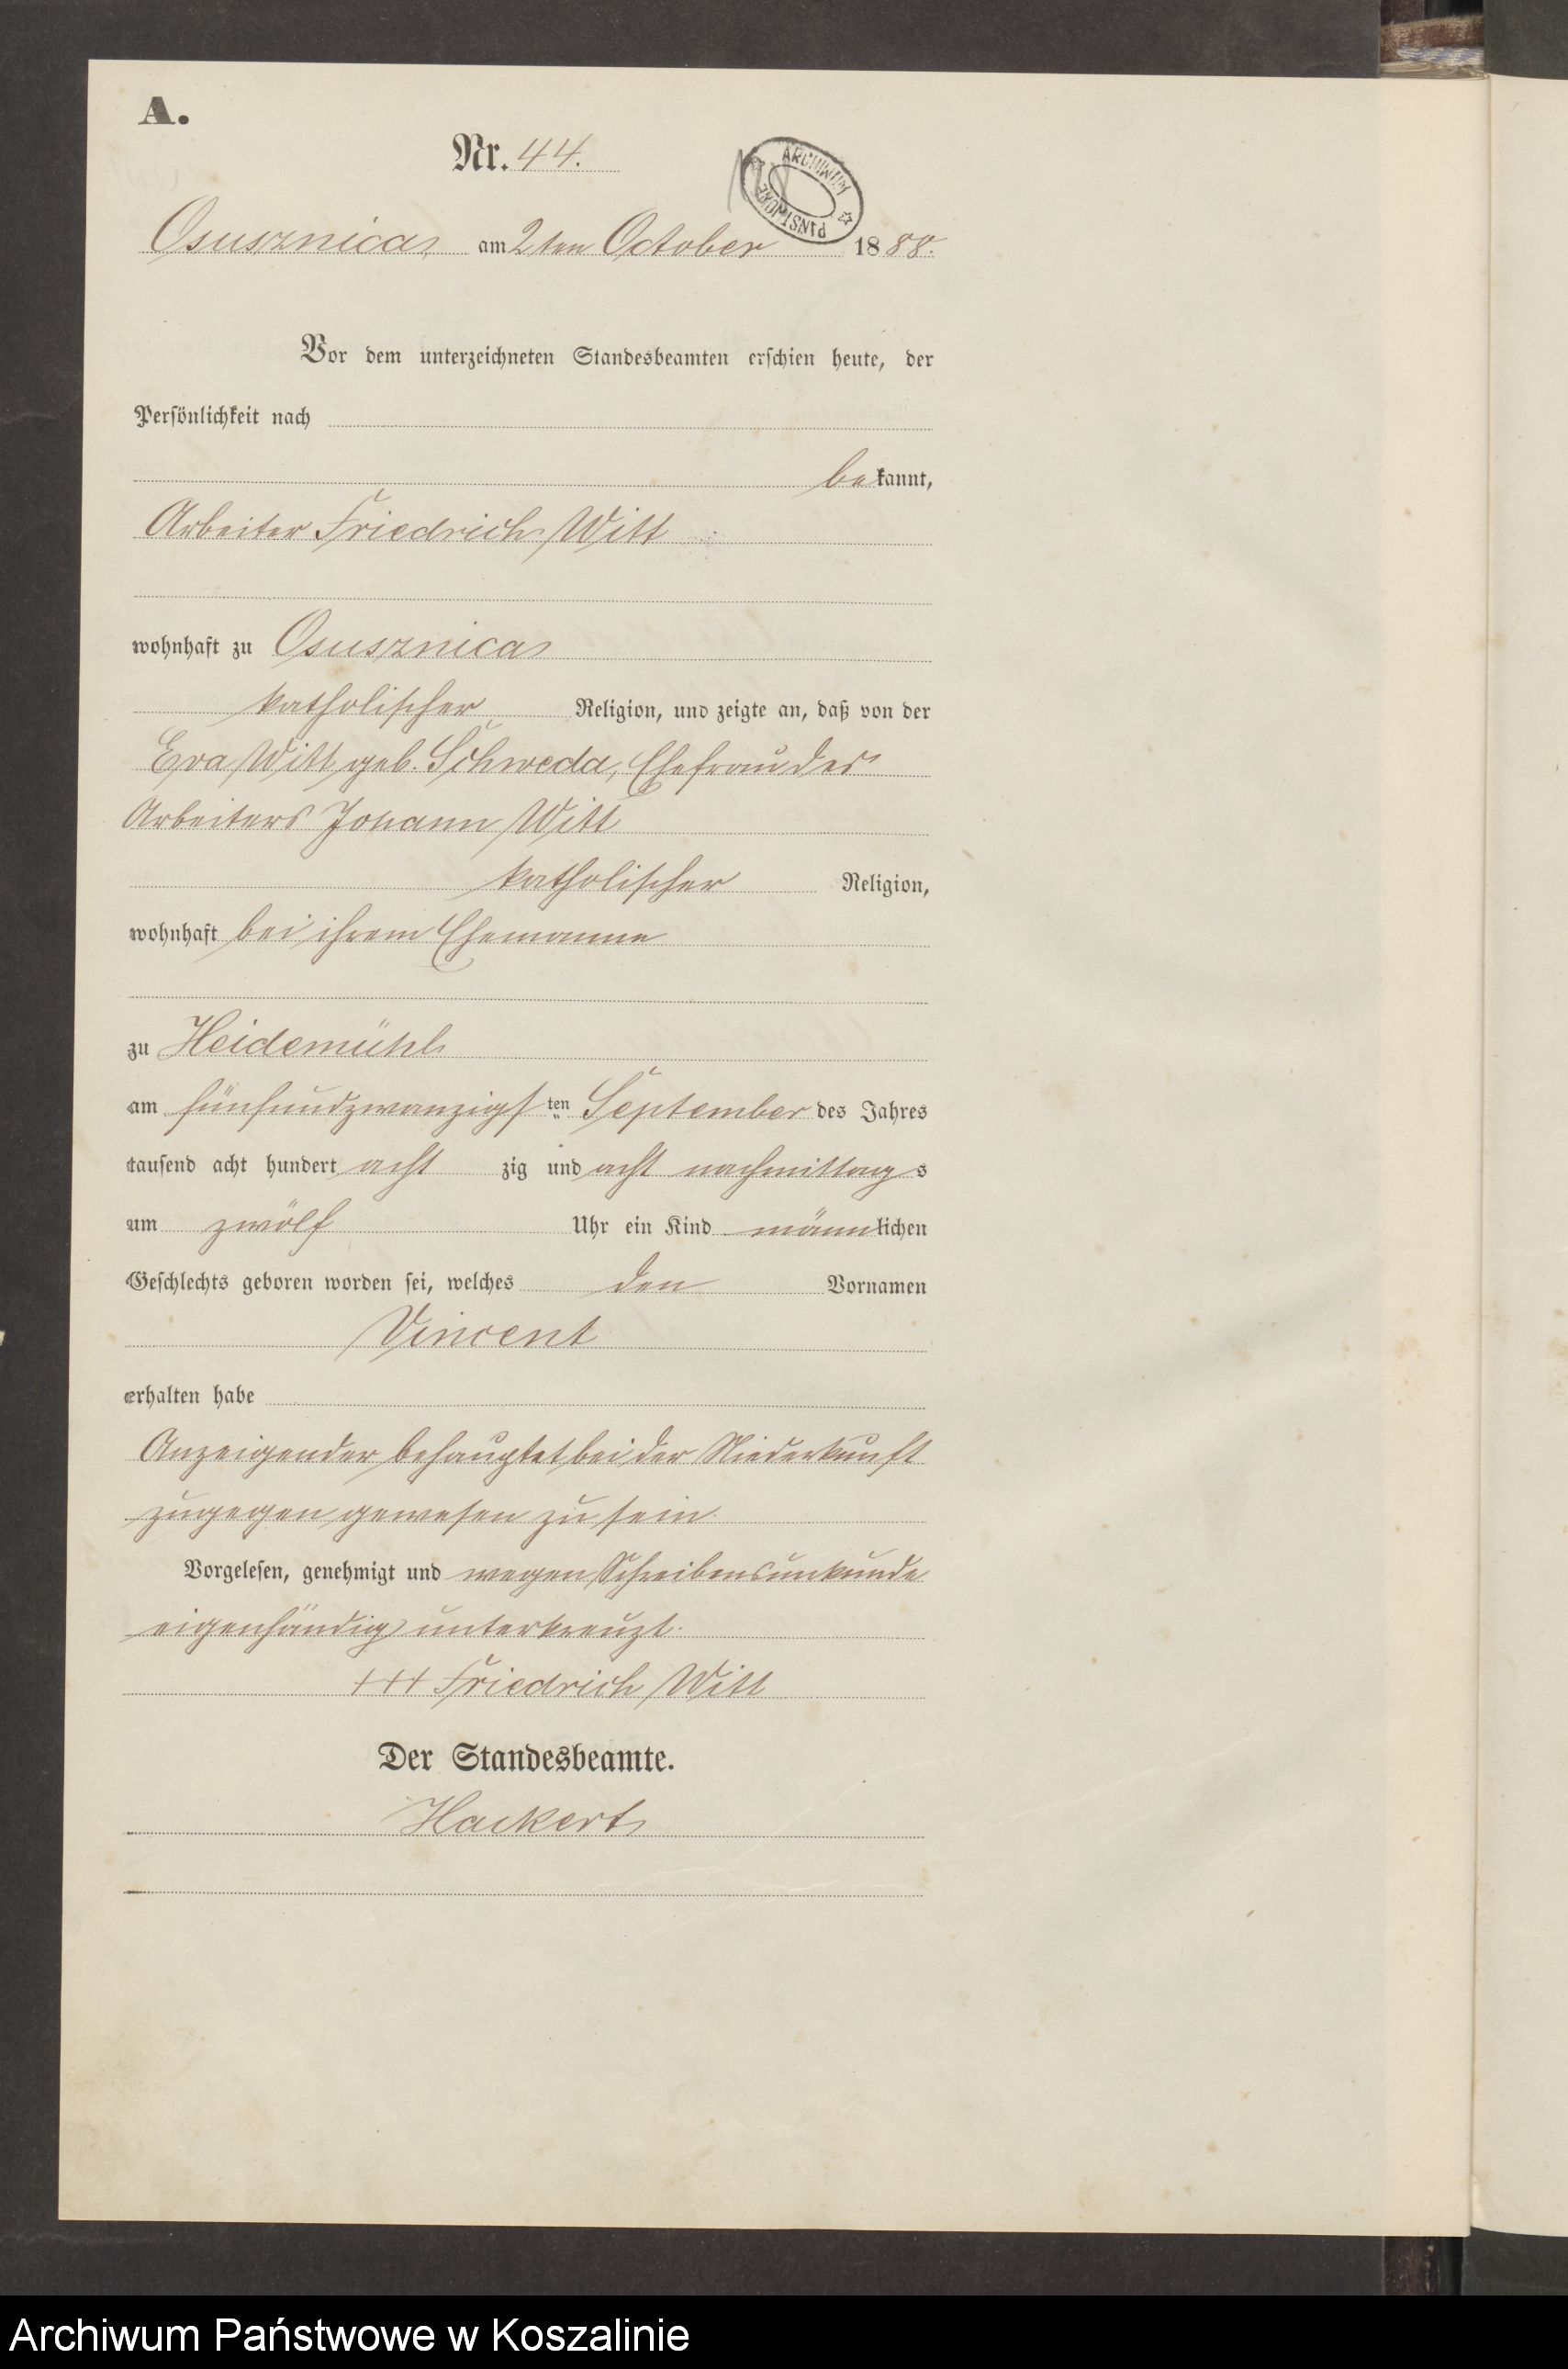 A.
Nr. 44.
ARCHIWUM PAŃSTWOWE
Osusznica, am 2ten October 1888.
Vor dem unterzeichneten Standesbeamten erschien heute, der
Persönlichkeit nach
bekannt,
Arbeiter Friedrich Witt
wohnhaft zu Osusznica
katholischer Religion, und zeigte an, daß von der
Eva Witt geb. Schweda, Ehefrau des
Arbeiters Johann Witt
katholischer Religion,
wohnhaft bei ihrem Ehemanne
zu Heidemühl
am fünfundzwanzigsten September des Jahres
tausend acht hundert acht zig und acht nachmittags
um zwölf Uhr ein Kind männlichen
Geschlechts geboren worden sei, welches den Vornamen
Vincent
erhalten habe
Anzeigender behauptet, bei der Niederkunft
zugegen gewesen zu sein.
Vorgelesen, genehmigt und wegen Schreibensunkunde
eigenhändig unterkreuzt.
+++ Friedrich Witt
Der Standesbeamte.
Hackert
Archiwum Państwowe w Koszalinie